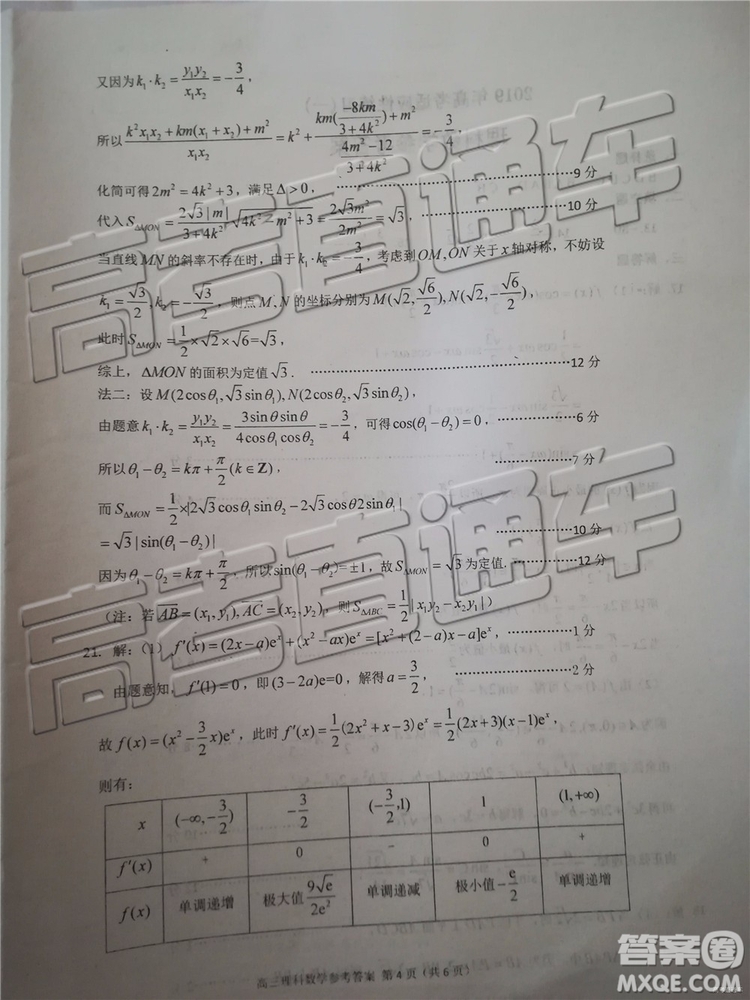 又因为k₁·k₂ = y₁y₂/x₁x₂ = -3/4，
所以 (k²x₁x₂+km(x₁+x₂)+m²)/x₁x₂ = k² + (km(-8km/(3+4k²))+m²)/((4m²-12)/(3+4k²)) = -3/4.
化简可得2m²=4k²+3，满足Δ>0，……9分
代入S△MON = (2√3|m|/(3+4k²))√(4k²-m²+3) = 2√3m²/2m² = √3，……10分
当直线MN的斜率不存在时，由于k₁·k₂=-3/4，考虑到OM,ON关于x轴对称，不妨设
k₁=√3/2,k₂=-√3/2，则点M、N的坐标分别为M(√2,√6/2),N(√2,-√6/2)，
此时S△MON=1/2×√2×√6=√3，
综上，ΔMON的面积为定值√3．……12分
法二：设M(2cosθ₁,√3sinθ₁),N(2cosθ₂,√3sinθ₂)，
由题意k₁·k₂=y₁y₂/x₁x₂=3sinθsinθ/4cosθ₁cosθ₂=-3/4，可得cos(θ₁-θ₂)=0，……6分
所以θ₁-θ₂=kπ+π/2(k∈Z)，……7分
而S△MON=1/2×|2√3cosθ₁sinθ₂-2√3cosθ2sinθ₁|
=√3|sin(θ₁-θ₂)|……10分
因为θ₁-θ₂=kπ+π/2，所以sin(θ₁-θ₂)=±1，故S△MON=√3为定值.……12分
（注：若AB=(x₁,y₁),AC=(x₂,y₂)，则S△ABC=1/2|x₁y₂-x₂y₁|）
21．解：（1）f′(x)=(2x-a)eˣ+(x²-ax)eˣ=[x²+(2-a)x-a]eˣ，……1分
由题意知，f′(1)=0，即(3-2a)e=0，解得a=3/2，……2分
故f(x)=(x²-3/2x)eˣ，此时f′(x)=1/2(2x²+x-3)eˣ=1/2(2x+3)(x-1)eˣ，
则有：
x (-∞,-3/2) -3/2 (-3/2,1) 1 (1,+∞)
f′(x) + 0 - 0 +
f(x) 单调递增 极大值9√e/2e² 单调递减 极小值-e/2 单调递增
高三理科数学参考答案 第4页（共6页）
高考直通车
高考直通车
答案圈
MXQE.COM